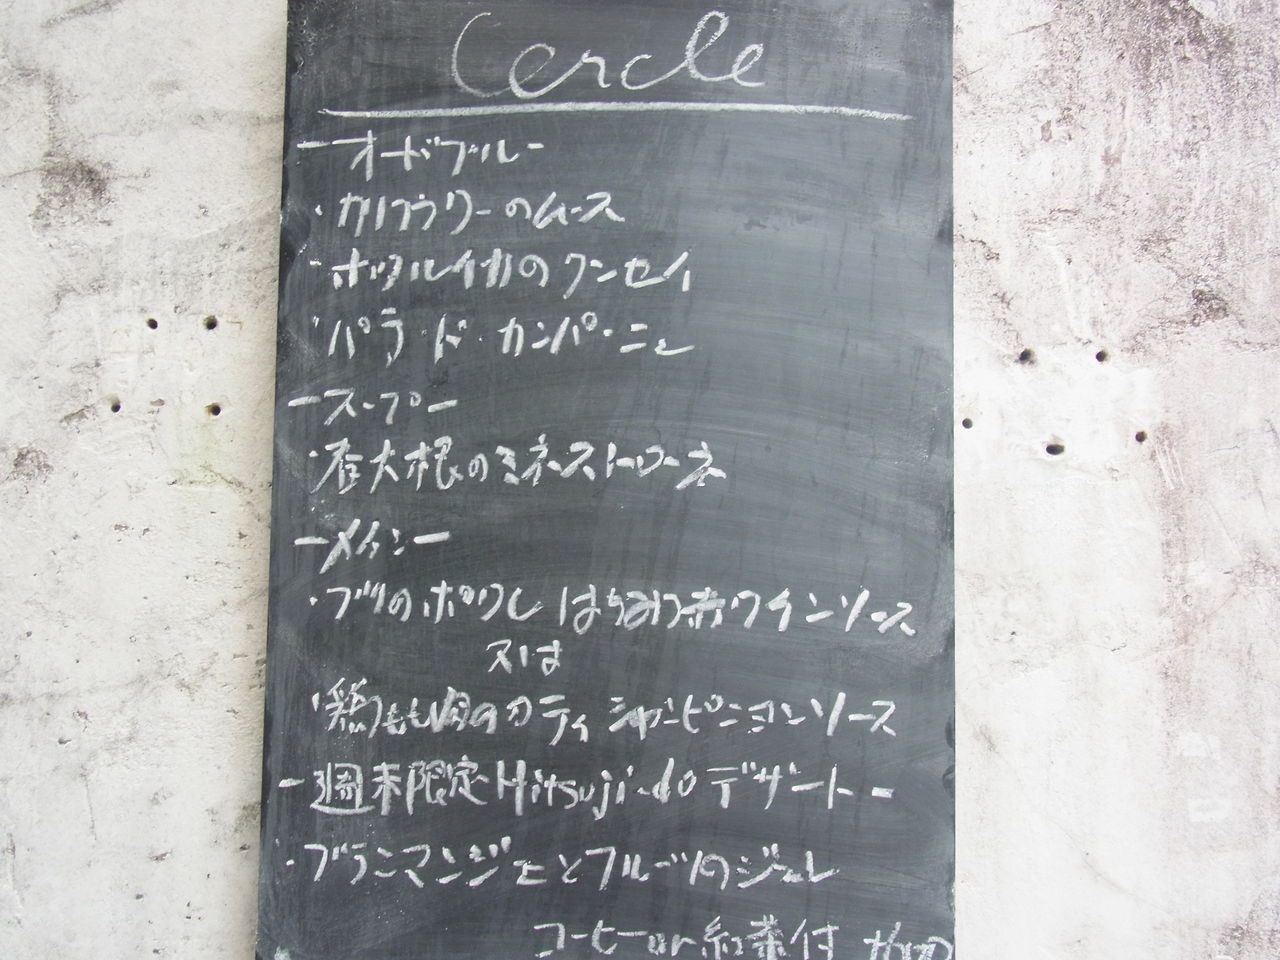 Cercle
ーオードブルー
・カリフラワーのムース
・ホタルイカのクンセイ
・パテ・ド・カンパーニュ
ースープー
・春大根のミネストローネ
ーメインー
・ブリのポワレ はちみつ赤ワインソース
又は
・鶏もも肉のロティ シャンピニオンソース
ー週末限定Hitsuji-doデザートー
・ブランマンジェとフルーツのジュレ
コーヒーor紅茶付